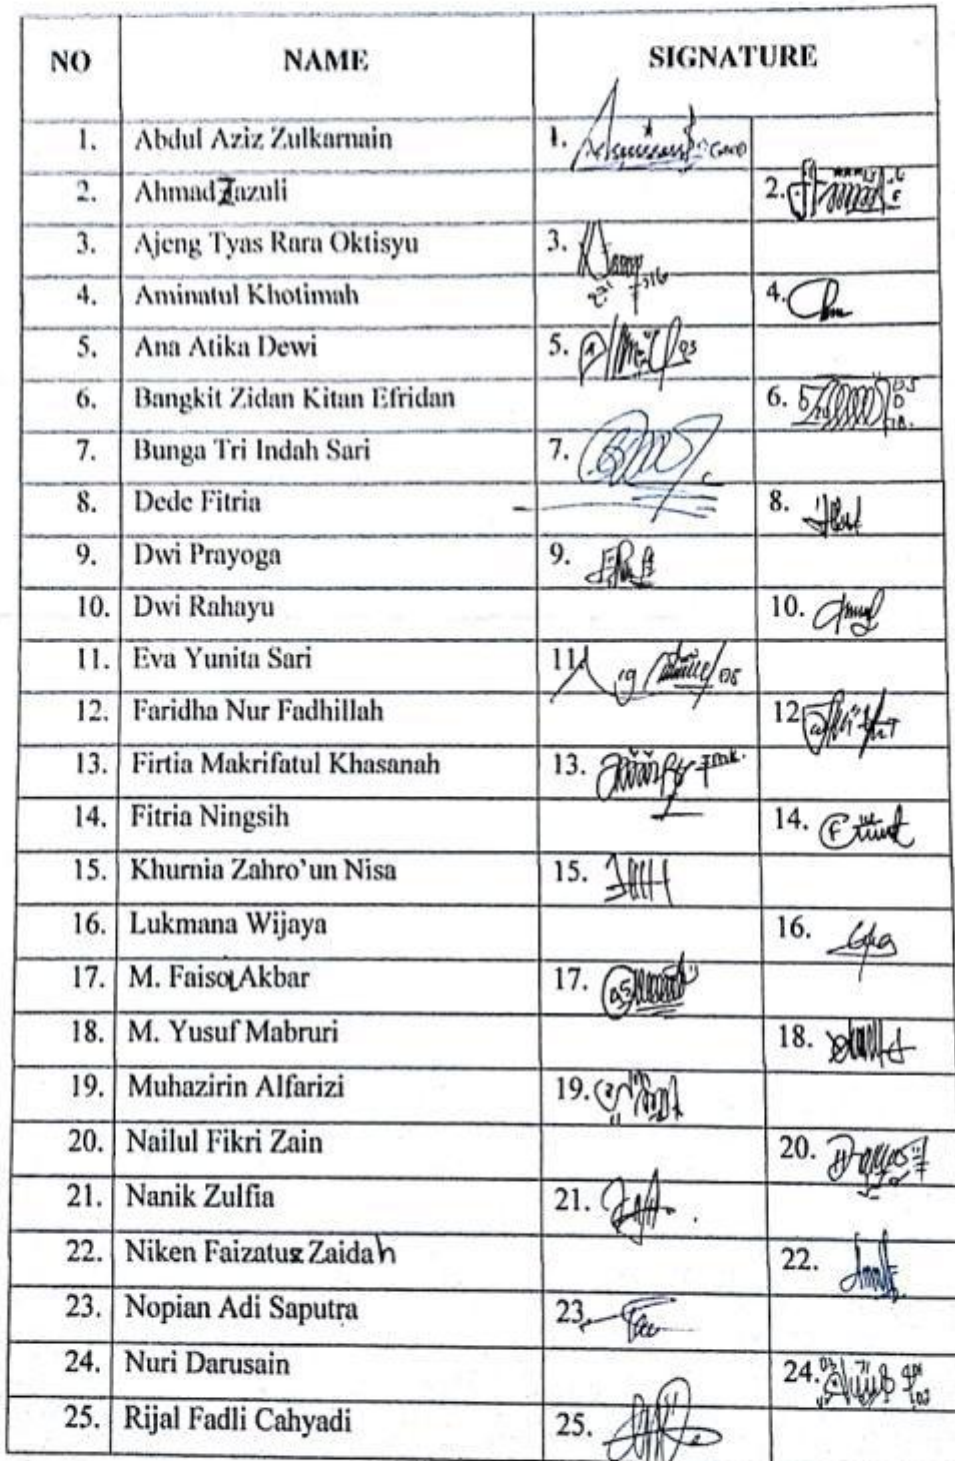 NO NAME SIGNATURE
1. Abdul Aziz Zulkarnain 1.
2. Ahmad Zazuli 2.
3. Ajeng Tyas Rara Oktisyu 3.
4. Aminatul Khotimah 4.
5. Ana Atika Dewi 5.
6. Bangkit Zidan Kitan Efridan 6.
7. Bunga Tri Indah Sari 7.
8. Dede Fitria 8.
9. Dwi Prayoga 9.
10. Dwi Rahayu 10.
11. Eva Yunita Sari 11.
12. Faridha Nur Fadhillah 12.
13. Firtia Makrifatul Khasanah 13.
14. Fitria Ningsih 14.
15. Khurnia Zahro'un Nisa 15.
16. Lukmana Wijaya 16.
17. M. Faisol Akbar 17.
18. M. Yusuf Mabruri 18.
19. Muhazirin Alfarizi 19.
20. Nailul Fikri Zain 20.
21. Nanik Zulfia 21.
22. Niken Faizatuz Zaidah 22.
23. Nopian Adi Saputra 23.
24. Nuri Darusain 24.
25. Rijal Fadli Cahyadi 25.